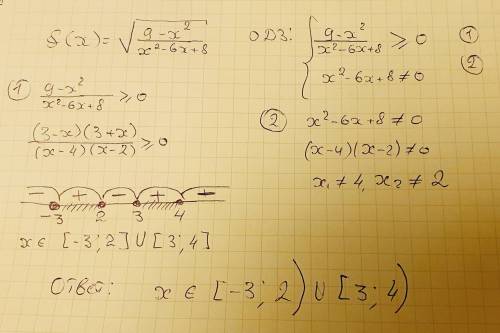 f(x) = √((9-x²)/(x²-6x+8))
ОДЗ: { (9-x²)/(x²-6x+8) ⩾ 0 ①
x²-6x+8 ≠ 0 ②
① (9-x²)/(x²-6x+8) ⩾ 0
((3-x)(3+x))/((x-4)(x-2)) ⩾ 0
- + - + +
-3 2 3 4
x ∈ [-3; 2] U [3; 4]
② x²-6x+8 ≠ 0
(x-4)(x-2) ≠ 0
x₁ ≠ 4, x₂ ≠ 2
Ответ: x ∈ [-3; 2) U [3; 4)